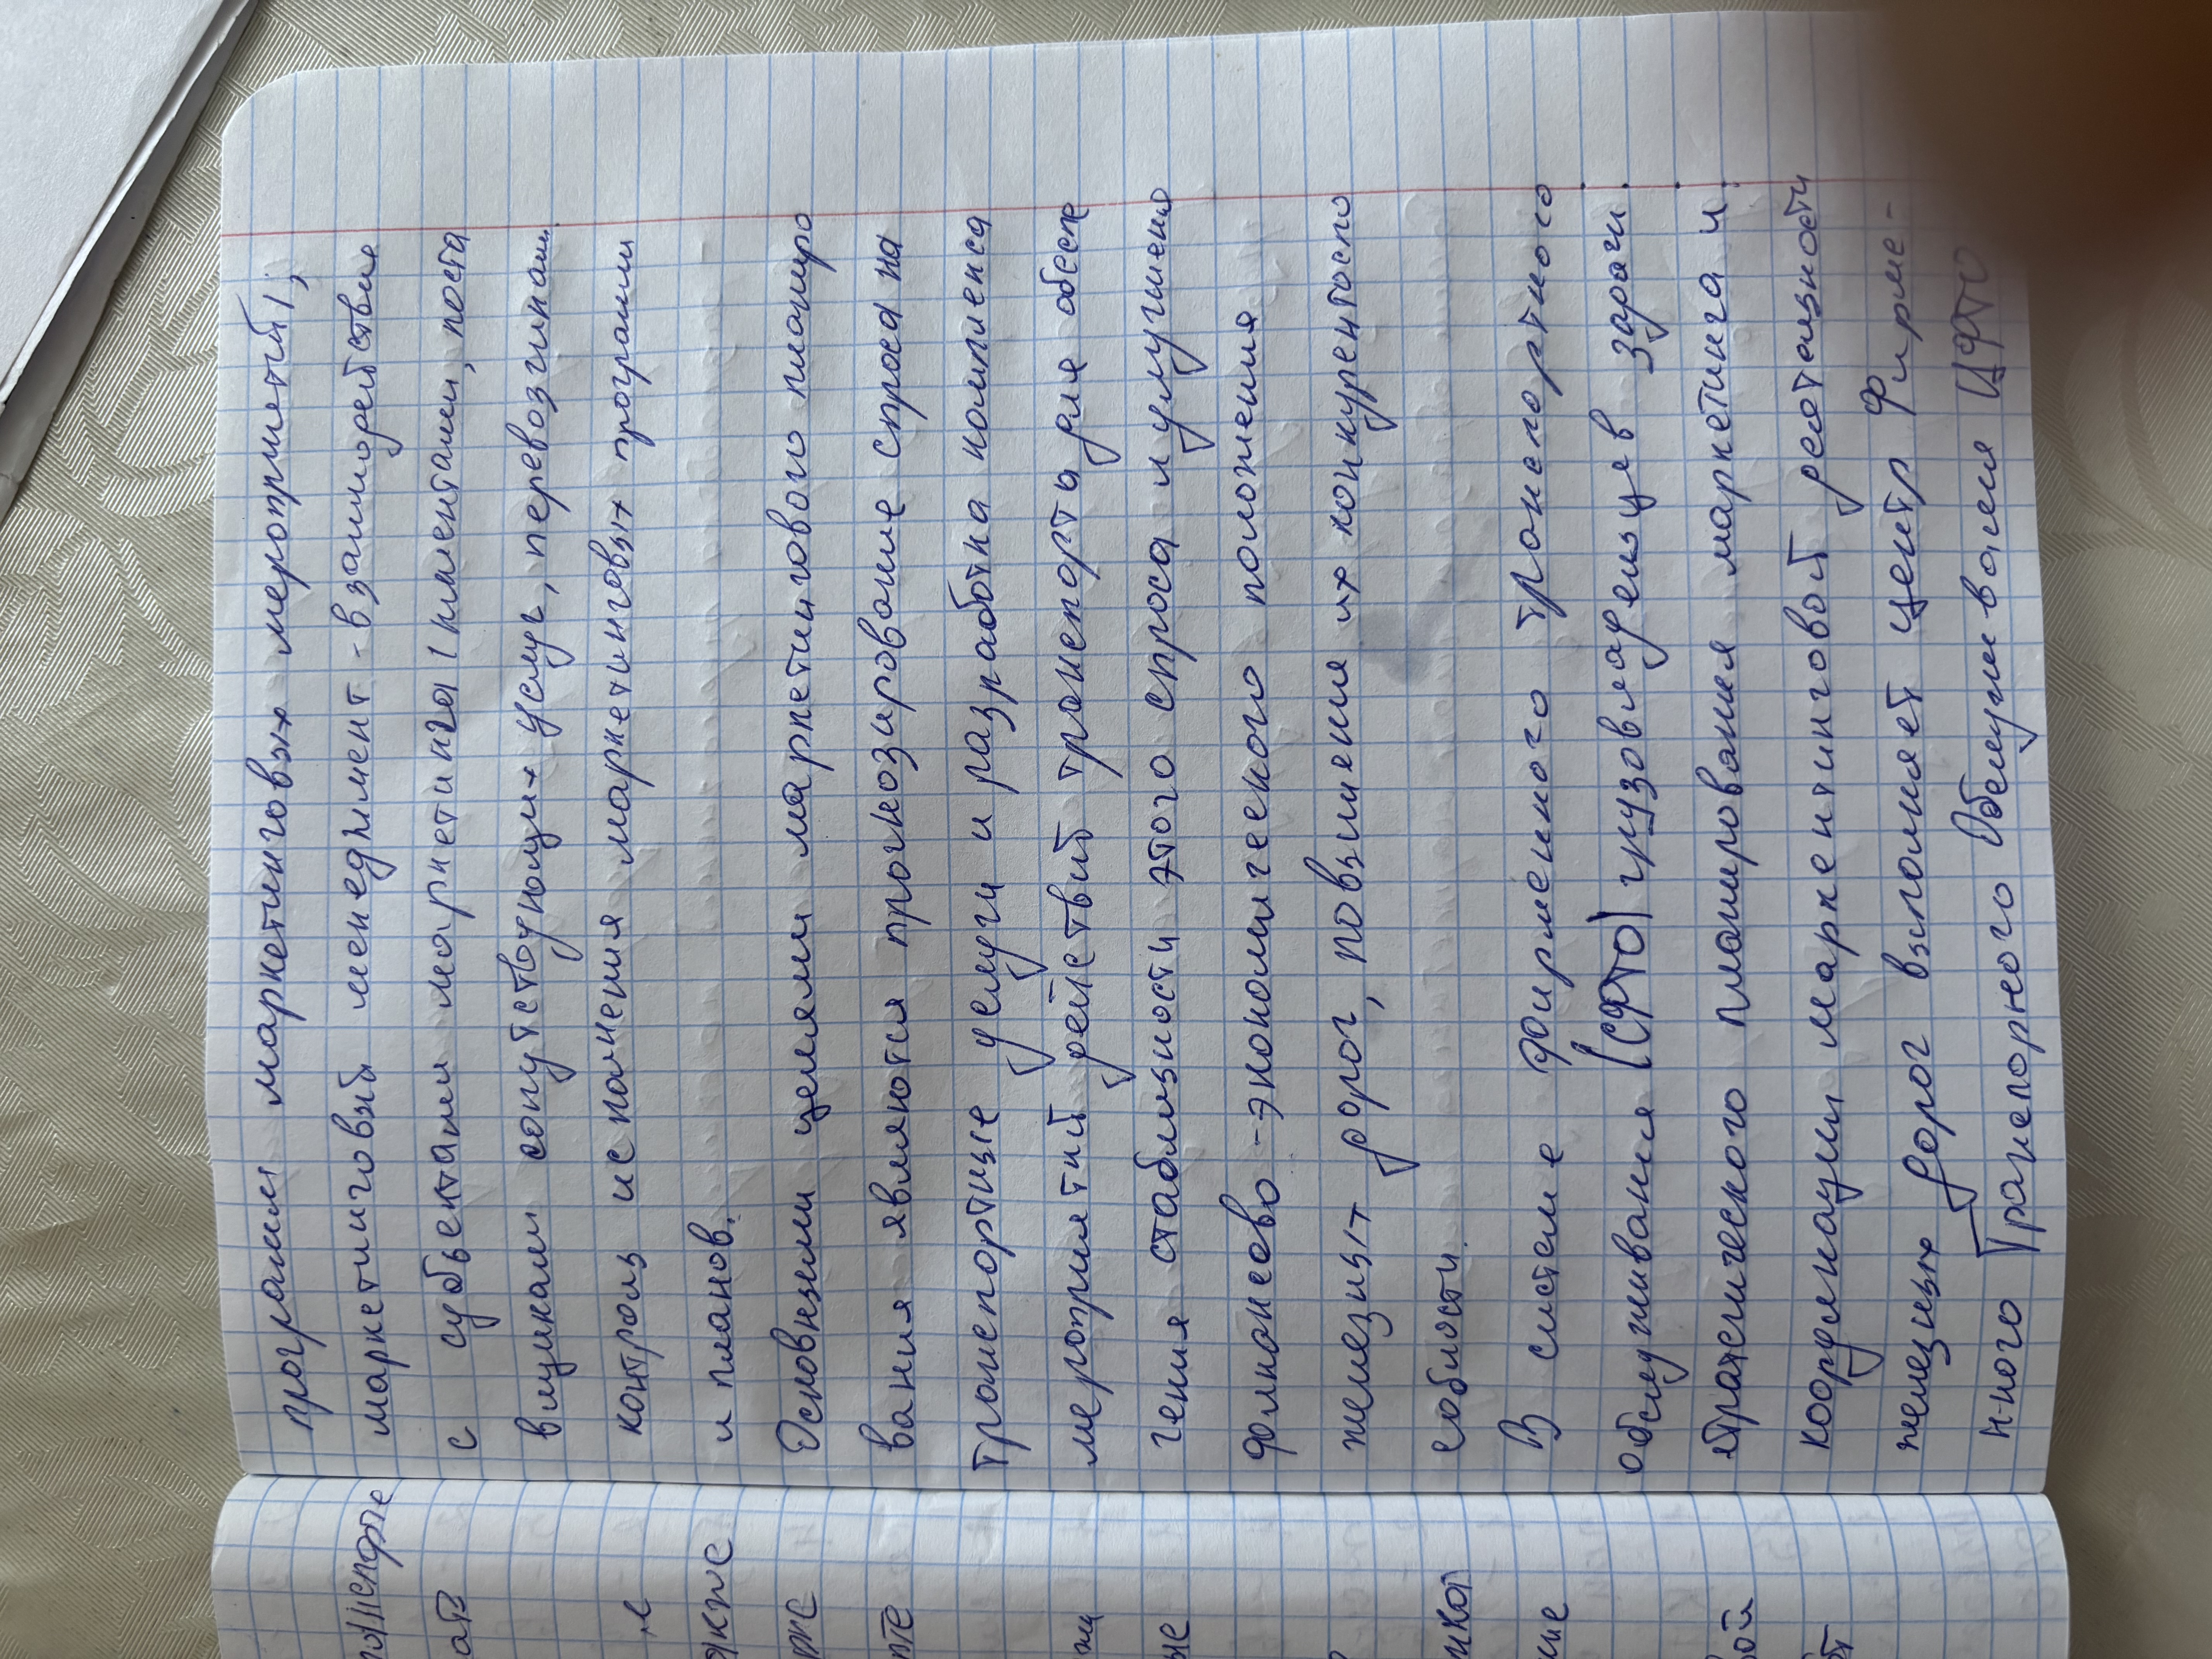 программ маркетинговых мероприятий;
маркетинговый менеджмент - взаимодействие
с субъектами маркетинга (клиентами, поста
вщиками сопутствующих услуг, перевозчикам
контроль исполнения маркетинговых программ
и планов.
Основными целями маркетингового планиро
вания являются прогнозирование спроса на
транспортные услуги и разработка комплекса
мероприятий действий транспорта для обеспе
чения стабильности этого спроса и улучшено
финансово-экономического положения
железных дорог, повышения их конкурентоспо
собности.
В системе фирменного транспортного
обслуживания (СФТО) грузовладельцев задачи
стратегического планирования маркетинга и
координации маркентинговой деятельности
железных дорог выполняет центр Фирме-
нного Транспорного Обслуживания ЦФТО